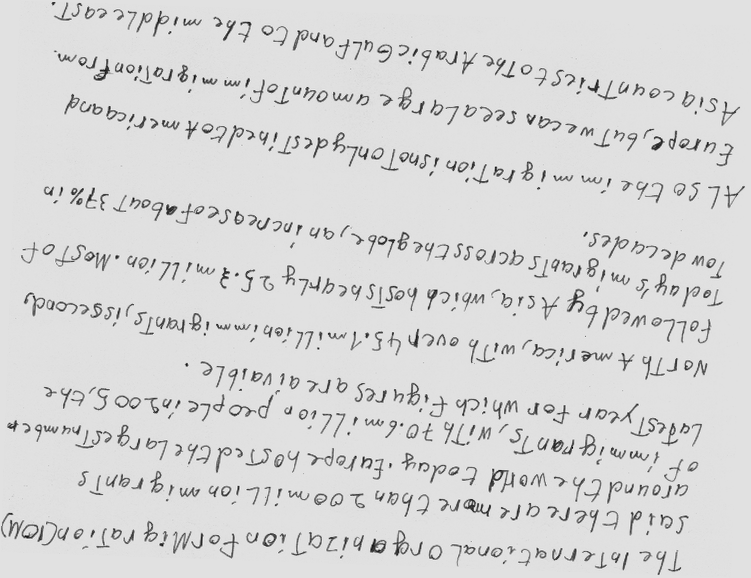 The International Organization For Migration (IOM)
said there are more than 200 million migrants
around the world today. Europe hosted the largest number
of immigrants, with 70.6 million people in 2005, the
Latest year for which figures are avaible.
North America, with over 45.1 million immigrants, is second,
followed by Asia, which hests hosts nearly 25.3 million. Most of
Today's migrants across the globe, an increase of about 37% in
Tow decades.
ALso the immigration is not only destined to America and
Europe, but we can see a large amount of immigration from
Asia countries to The Arabic Gulf and to the middle east.